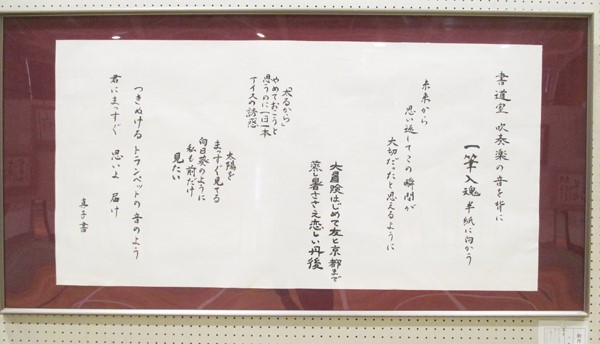 書道室 吹奏楽の音を背に
一筆入魂 半紙に向かう
未来から
思い返してこの瞬間が
大切だったと思えるように
大冒険はじめて友と京都まで
蒸し暑ささえ恋しい丹後
「太るから」
やめておこうと
思うのに一日一本
アイスの誘惑
太陽を
まっすぐ見てる
向日葵のように
私も前だけ
見たい
つきぬける トランペットの音のよう
君にまっすぐ 思いよ 届け
真子書